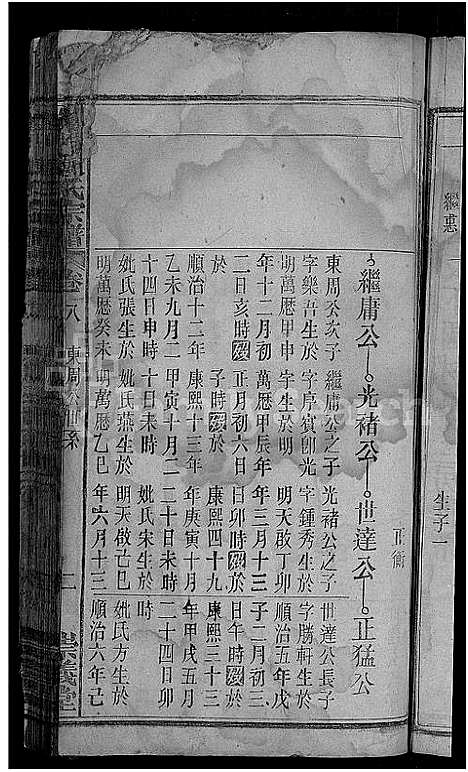 繼志
生子二
繼庸公 光褚公 世達公 正猛公
正衡
東周公次子
字樂吾生於
明萬曆甲申
年十二月初
二日亥時歿
於
順治十二年
乙未九月二
十四日申時
妣氏張生於
明萬曆癸未
繼庸公之子
字厚寅卽光
宇生於明
萬曆甲辰年
正月初六日
子時歿於
康熙十三年
甲寅十月二
十日未時
妣氏燕生於
明萬曆乙巳
光褚公之子
字鍾秀生於
明天啟丁卯
年三月十三
日卯時歿於
康熙四十九
年庚寅十月
二十日未時
妣氏宋生於
明天啟己巳
年六月十三
世達公長子
字勝軒生於
順治五年戊
子二月初三
日午時歿於
康熙三十三
年甲戌五月
二十四日卯
時
妣氏方生於
順治六年己
氏宗譜 卷八 東周公世系 二 崇義堂